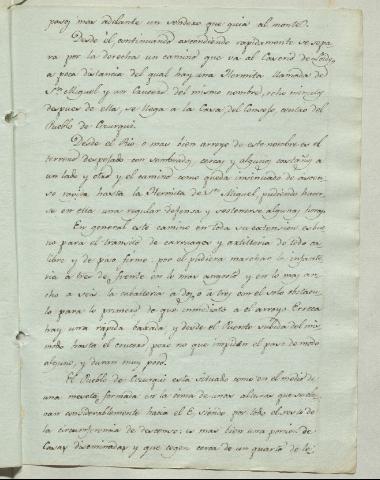 pasos mas adelante un sendero que guia al monte.
Desde él, continuando ascendiendo rapidamente se sepa
ra por la derecha un camino que va al Caserio de
a poca distancia del qual hay una Hermita llamada de
Sn. Miguel y un Caserio del mismo nombre, ocho minutos
despues de ella, se llega a la Casa del Consejo, centro del
Pueblo de Cizurquil.
Desde el Rio o mas bien arroyo de este nombre es el
terreno despejado con sembrados, cercas y algunos castaños a
un lado y otro y el camino como queda insinuado de ascen
so rapido hasta la Hermita de Sn. Miguel, pudiendo hacer
se en ella una regular defensa y sostenerse algunas horas.
En general este camino en toda su extension es bue
no para el transito de carruages y artilleria de todo ca
libre y de piso firme: por el pudiera marchar la infante
ria a tres de frente en lo mas angosto y en lo mas an
cho a seis: la caballeria a dos o a tres con el solo obstacu
lo para lo primero de que inmediato a el arroyo Erreca
hay una rapida baxada y desde el Puente subida del mis
mo hasta el crucero, pero que no impiden el paso de modo
alguno, y duran muy poco.
El Pueblo de Cizurquil está situado como en el medio de
una meseta formada en la cima de unas alturas que se ele
van considerablemente hacia el E. siendo por todo el resto de
la circunferencia de descenso: es mas bien una porcion de
Casas diseminadas y que cogen cerca de un quarto de le